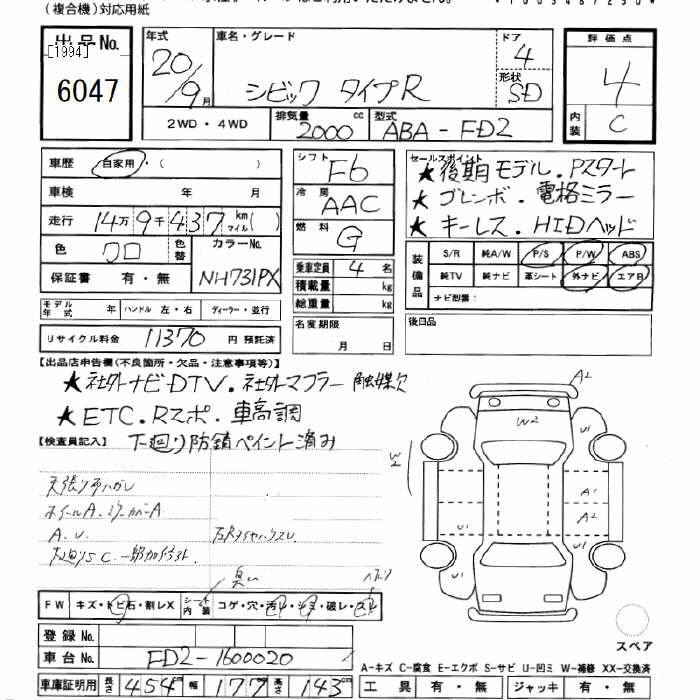 (複合機)対応用紙
出品No.
[1994]
6047
年式 20/9月
車名・グレード
シビック タイプR
ドア 4
形状 SD
評価点
4
内装 C
2WD・4WD
排気量 2000 cc
型式 ABA-FD2
車歴 自家用・( )
車検 年 月
走行 14万9千437 km マイル( )
色 クロ
色替
カラーNo. NH731PX
保証書 有・無
シフト F6
冷房 AAC
燃料 G
乗車定員 4 名
積載量 kg
総重量 kg
名変期限 月 日
セールスポイント
★後期モデル・Pスタート
★ゴレンボ・電格ミラー
★キーレス・HIDヘッド
装備品
S/R 純A/W P/S P/W ABS
純TV 純ナビ 革シート 外ナビ エアB
ナビ型番:
後日品
モデル年式 年 ハンドル 左・右 ディーラー・並行
リサイクル料金 11370 円 預託済
【出品店申告欄(不良箇所・欠品・注意事項等)】
★社外ナビ・DTV・社外マフラー 触媒欠
★ETC・Rスポ・車高調
【検査員記入】 下廻り防錆ペイント済み
天張りハガレ
ホイールA、ミラーカバーA
A.U.
FW キズ・トビ石・割レX
シート内装 コゲ・穴・汚レ・シミ・破レ・スレ
登録No.
車台No. FD2-1600020
車庫証明用 長さ 454 cm 幅 177 高さ 143 cm
A2
W2
U1
W2
A1
A2
U1
U1
U1
スペア
A-キズ C-腐食 E-エクボ S-サビ U-凹ミ W-補修 XX-交換済
工具 有・無 ジャッキ 有・無